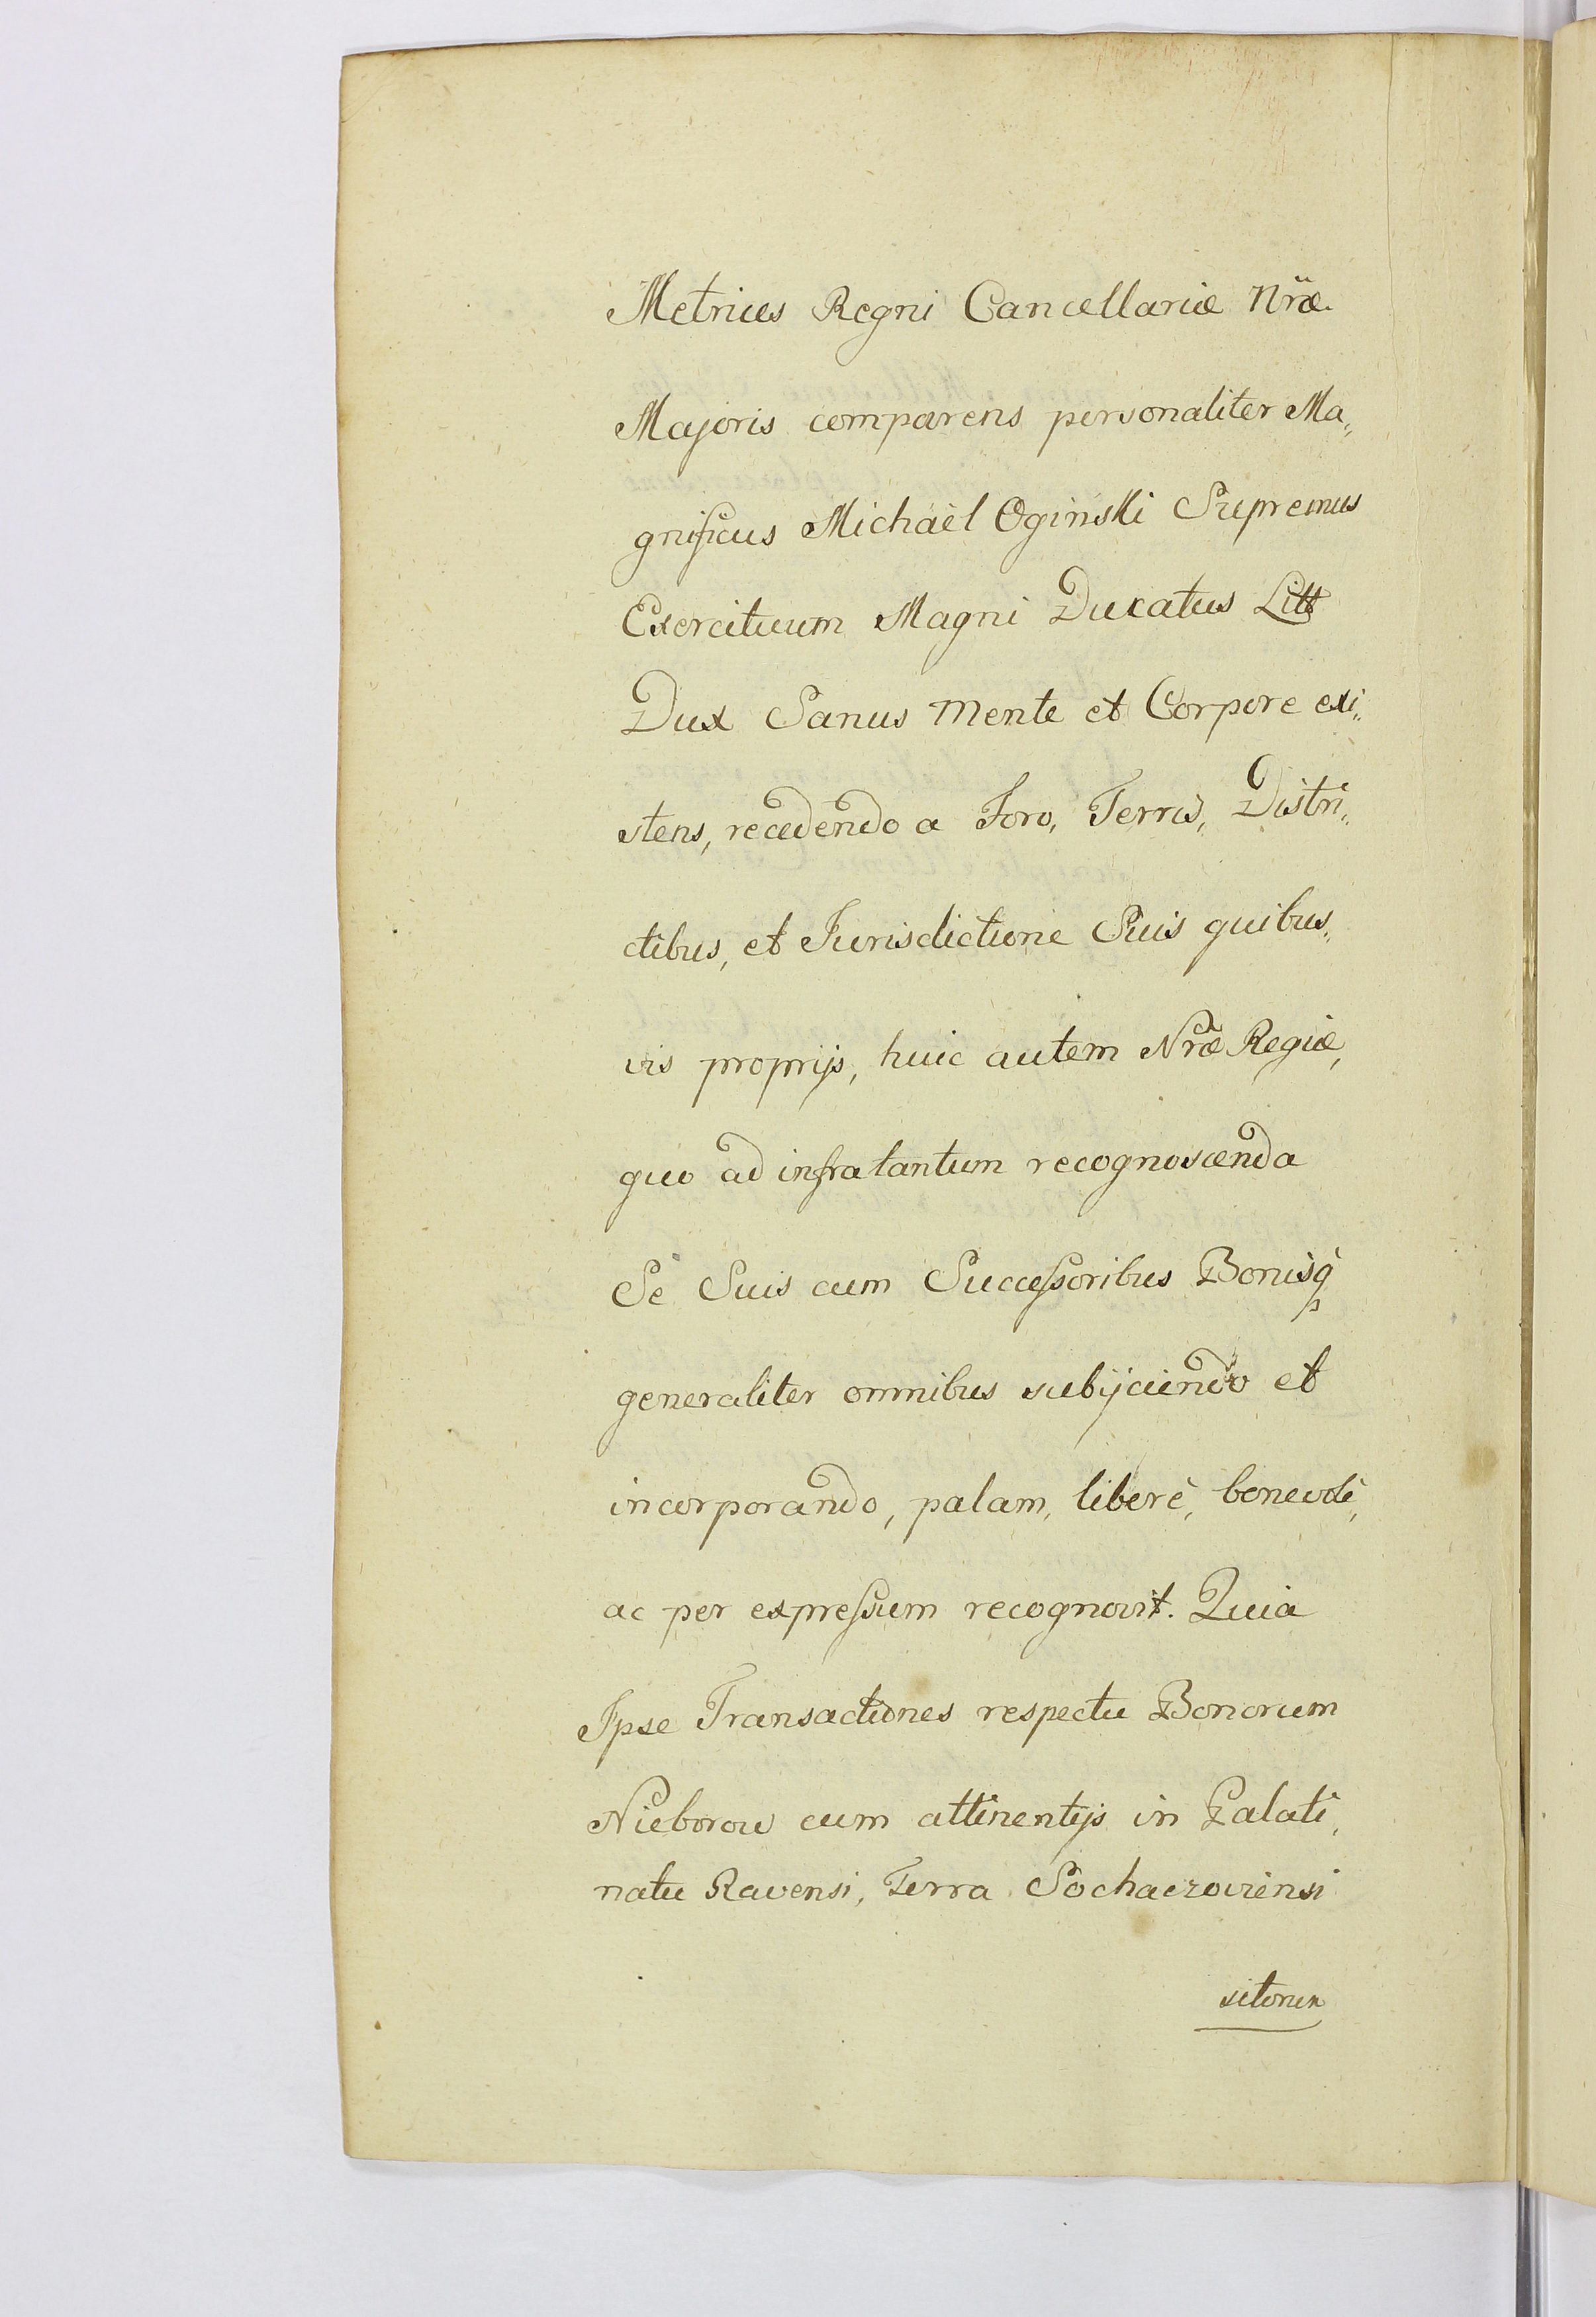 Metrices Regni Cancellariæ Nr̃æ
Majoris comparens personaliter Ma„
gnificus Michaèl Oginski Supremus
Exercituum Magni Ducatus Litt
Dux Sanus mente et Corpore exi„
stens, recedendo a Foro, Terris, Distri„
ctibus, et Jurisdictione Suis quibus„
vis proprijs, huic autem Nr̃æ Regiæ,
quo ad infra tantum recognoscenda
Sè Suis cum Successoribus Bonisq̀
generaliter omnibus subijciendo et
incorporando, palam, liberè, benevolè,
ac per expressum recognovit. Quia
Ipse Transactiones respectu Bonorum
Nieborow cum attinentijs in Palati„
natu Ravensi, Terra Sochaczoviensi
sitorum